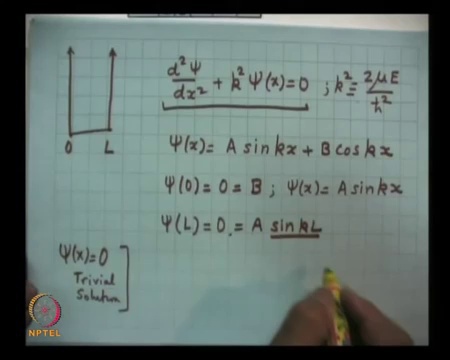 d²Ψ/dx² + k² Ψ(x) = 0 ; k² = 2μE/ħ²
0 L
Ψ(x) = A sin kx + B cos kx
Ψ(0) = 0 = B ; Ψ(x) = A sin kx
Ψ(L) = 0 = A sin kL
Ψ(x) = 0
Trivial
Solution
NPTEL